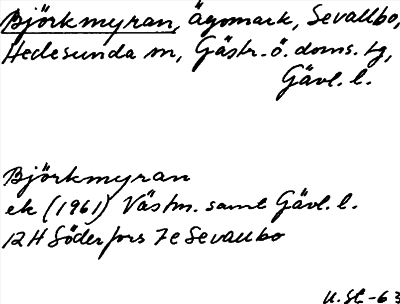 Björkmyran, ägomark, Sevallbo,
Hedesunda sn, Gästr. ö. doms. tg,
Gävl. l.
Björkmyran
ek (1961) Västm. samt Gävl. l.
12H Söderfors 7e Sevallbo
U. St. -63